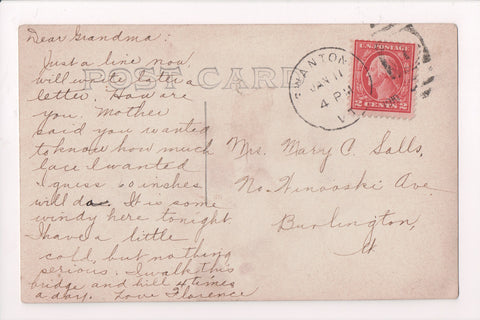 Dear Grandma:
Just a line now,
will write with a
letter. How are
you. Mother
said you wanted
to know how much
lace I wanted
I guess 60 inches
will do. It is some
windy here tonight.
I have a little
cold, but nothing
serious. I walk this
bridge and hill 4 times
a day. Love Florence
POST CARD
SWANTON
JAN 11
4 PM
U.S. POSTAGE
2 CENTS 2
Mrs. Mary C. Salls,
No. Winooski Ave.
Burlington,
Vt